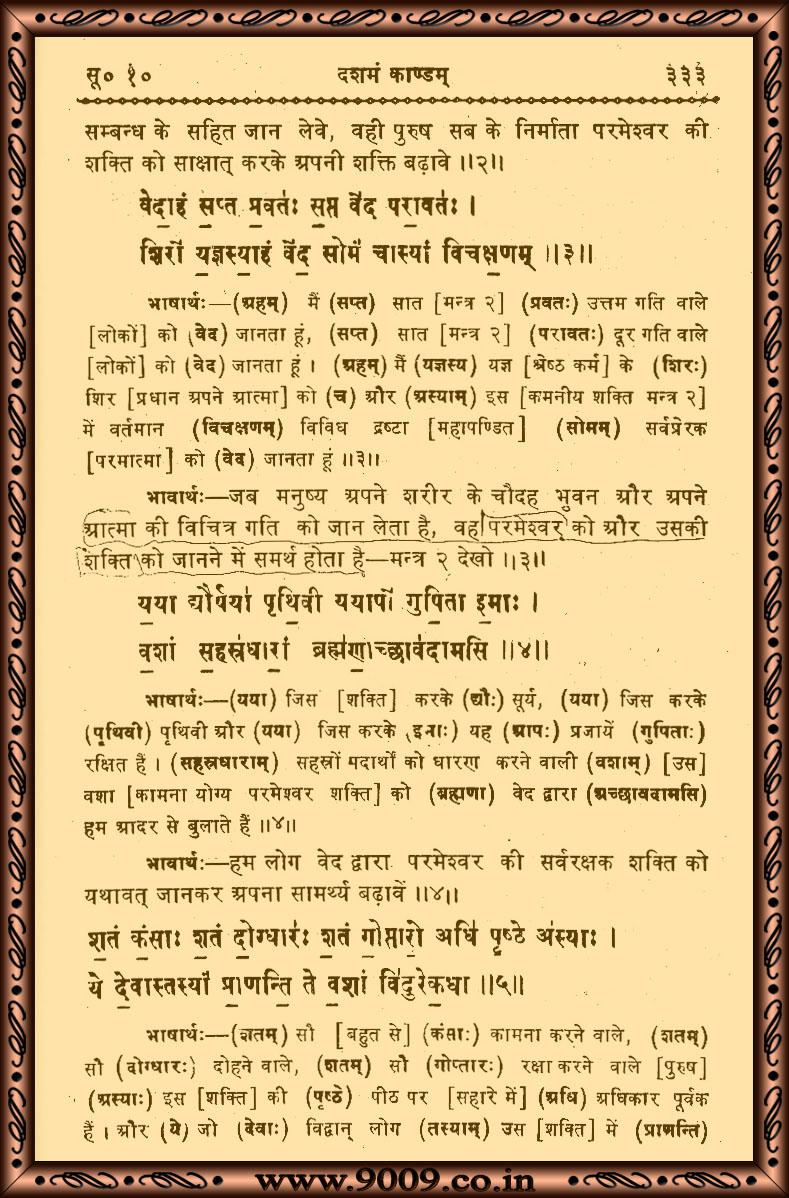 सू० १० दशमं काण्डम् ३३३
सम्बन्ध के सहित जान लेवे, वही पुरुष सब के निर्माता परमेश्वर की
शक्ति को साक्षात् करके अपनी शक्ति बढ़ावे ॥२॥
वेदा॒हं स॒प्त प्र॒वतः॑ स॒प्त वे॑द परा॒वतः॑ ।
शिरो॑ य॒ज्ञस्या॒हं वे॑द॒ सोमं॑ चास्यां विचक्ष॒णम् ॥३॥
भाषार्थः—(अहम्) मैं (सप्त) सात [मन्त्र २] (प्रवतः) उत्तम गति वाले
[लोकों] को (वेद) जानता हूं, (सप्त) सात [मन्त्र २] (परावतः) दूर गति वाले
[लोकों] को (वेद) जानता हूं । (अहम्) मैं (यज्ञस्य) यज्ञ [श्रेष्ठ कर्म] के (शिरः)
शिर [प्रधान अपने आत्मा] को (च) और (अस्याम्) इस [कमनीय शक्ति मन्त्र २]
में वर्तमान (विचक्षणम्) विविध द्रष्टा [महापण्डित] (सोमम्) सर्वप्रेरक
[परमात्मा] को (वेद) जानता हूं ॥३॥
भावार्थः—जब मनुष्य अपने शरीर के चौदह भुवन और अपने
आत्मा की विचित्र गति को जान लेता है, वह परमेश्वर को और उसकी
शक्ति को जानने में समर्थ होता है—मन्त्र २ देखो ॥३॥
यया॒ द्यौर्यया॑ पृथि॒वी ययापो॑ गुपि॒ता इ॒माः ।
व॒शां स॒हस्र॑धारां॒ ब्रह्म॑णा॒च्छाव॑दामसि ॥४॥
भाषार्थः—(यया) जिस [शक्ति] करके (द्यौः) सूर्य, (यया) जिस करके
(पृथिवी) पृथिवी और (यया) जिस करके (इमाः) यह (आपः) प्रजायें (गुपिताः)
रक्षित हैं । (सहस्रधाराम्) सहस्रों पदार्थों को धारण करने वाली (वशाम्) [उस]
वशा [कामना योग्य परमेश्वर शक्ति] को (ब्रह्मणा) वेद द्वारा (अच्छावदामसि)
हम आदर से बुलाते हैं ॥४॥
भावार्थः—हम लोग वेद द्वारा परमेश्वर की सर्वरक्षक शक्ति को
यथावत् जानकर अपना सामर्थ्य बढ़ावें ॥४॥
श॒तं कं॒साः श॒तं दो॒ग्धारः॑ श॒तं गो॒प्तारो॒ अधि॑ पृ॒ष्ठे अ॑स्याः ।
ये दे॒वास्तस्यां॑ प्रा॒णन्ति॒ ते व॒शां वि॑दुरेक॒धा ॥५॥
भाषार्थः—(शतम्) सौ [बहुत से] (कंसाः) कामना करने वाले, (शतम्)
सौ (दोग्धारः) दोहने वाले, (शतम्) सौ (गोप्तारः) रक्षा करने वाले [पुरुष]
(अस्याः) इस [शक्ति] की (पृष्ठे) पीठ पर [सहारे में] (अधि) अधिकार पूर्वक
हैं । और (ये) जो (देवाः) विद्वान् लोग (तस्याम्) उस [शक्ति] में (प्राणन्ति)
www.9009.co.in